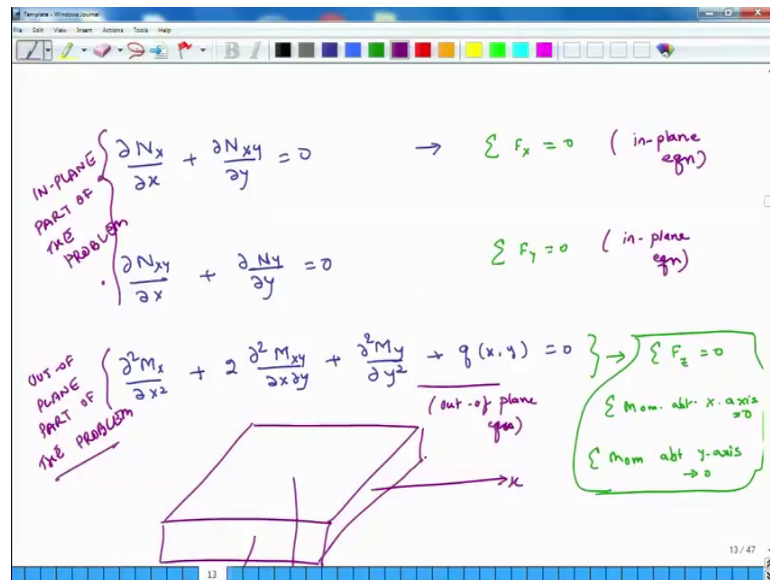 Template - Windows Journal
File Edit View Insert Actions Tools Help
B I
IN-PLANE
PART OF
THE
PROBLEM
∂Nx/∂x + ∂Nxy/∂y = 0 → Σ Fx = 0 (in-plane
eqn)
∂Nxy/∂x + ∂Ny/∂y = 0 Σ Fy = 0 (in-plane
eqn)
OUT-OF
PLANE
PART OF
THE PROBLEM
∂²Mx/∂x² + 2 ∂²Mxy/∂x∂y + ∂²My/∂y² + q(x,y) = 0 } → Σ Fz = 0
(out-of plane
eqn)
Σ Mom. abt. x-axis
=0
Σ Mom abt y-axis
→ 0
x
13 / 47
13